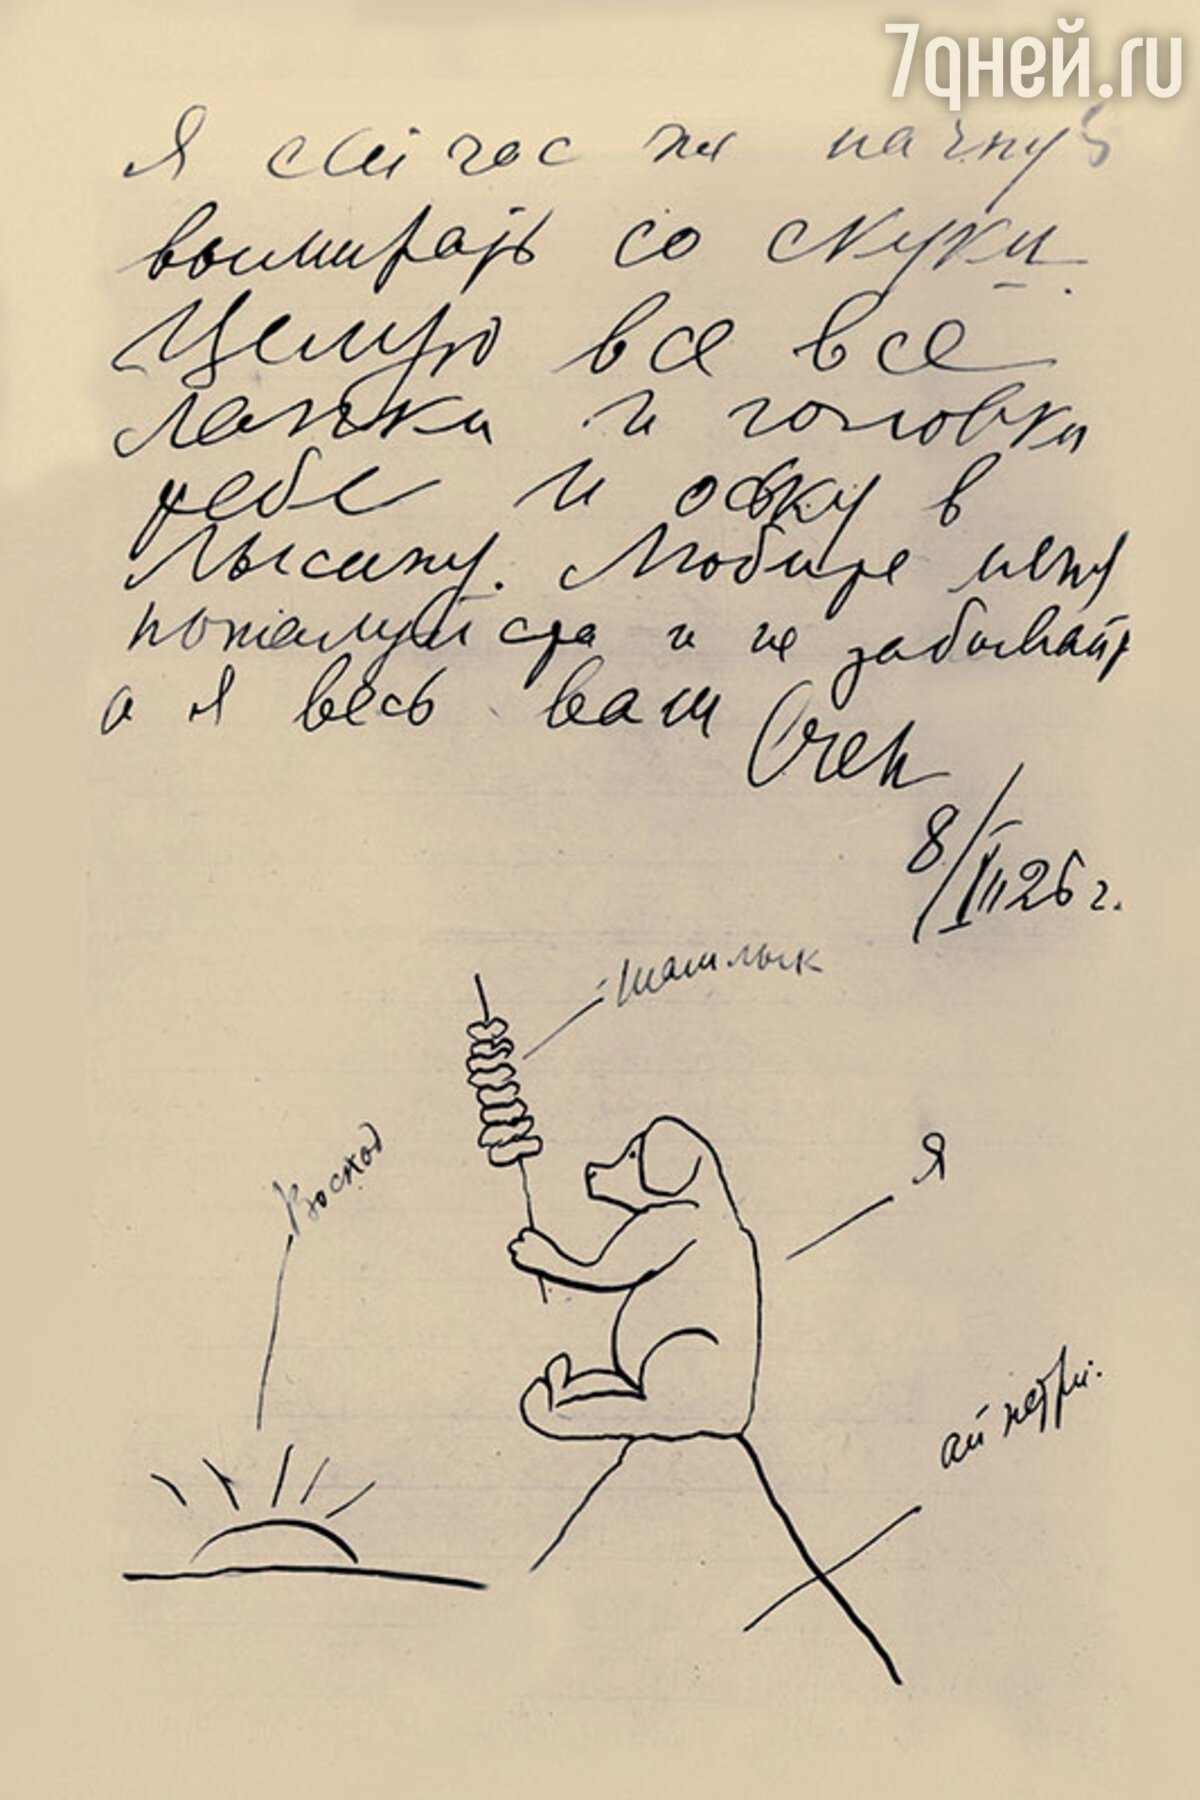 7дней.ru
Я сейчас же начну
вымирать со скуки.
Целую все все
лапки и головки
тебе и оську в
лысину. Любите меня
пожалуйста и не забывайте
а я весь ваш Счен
8/VII 26 г.
шашлык
Восход
Я
ай петри.